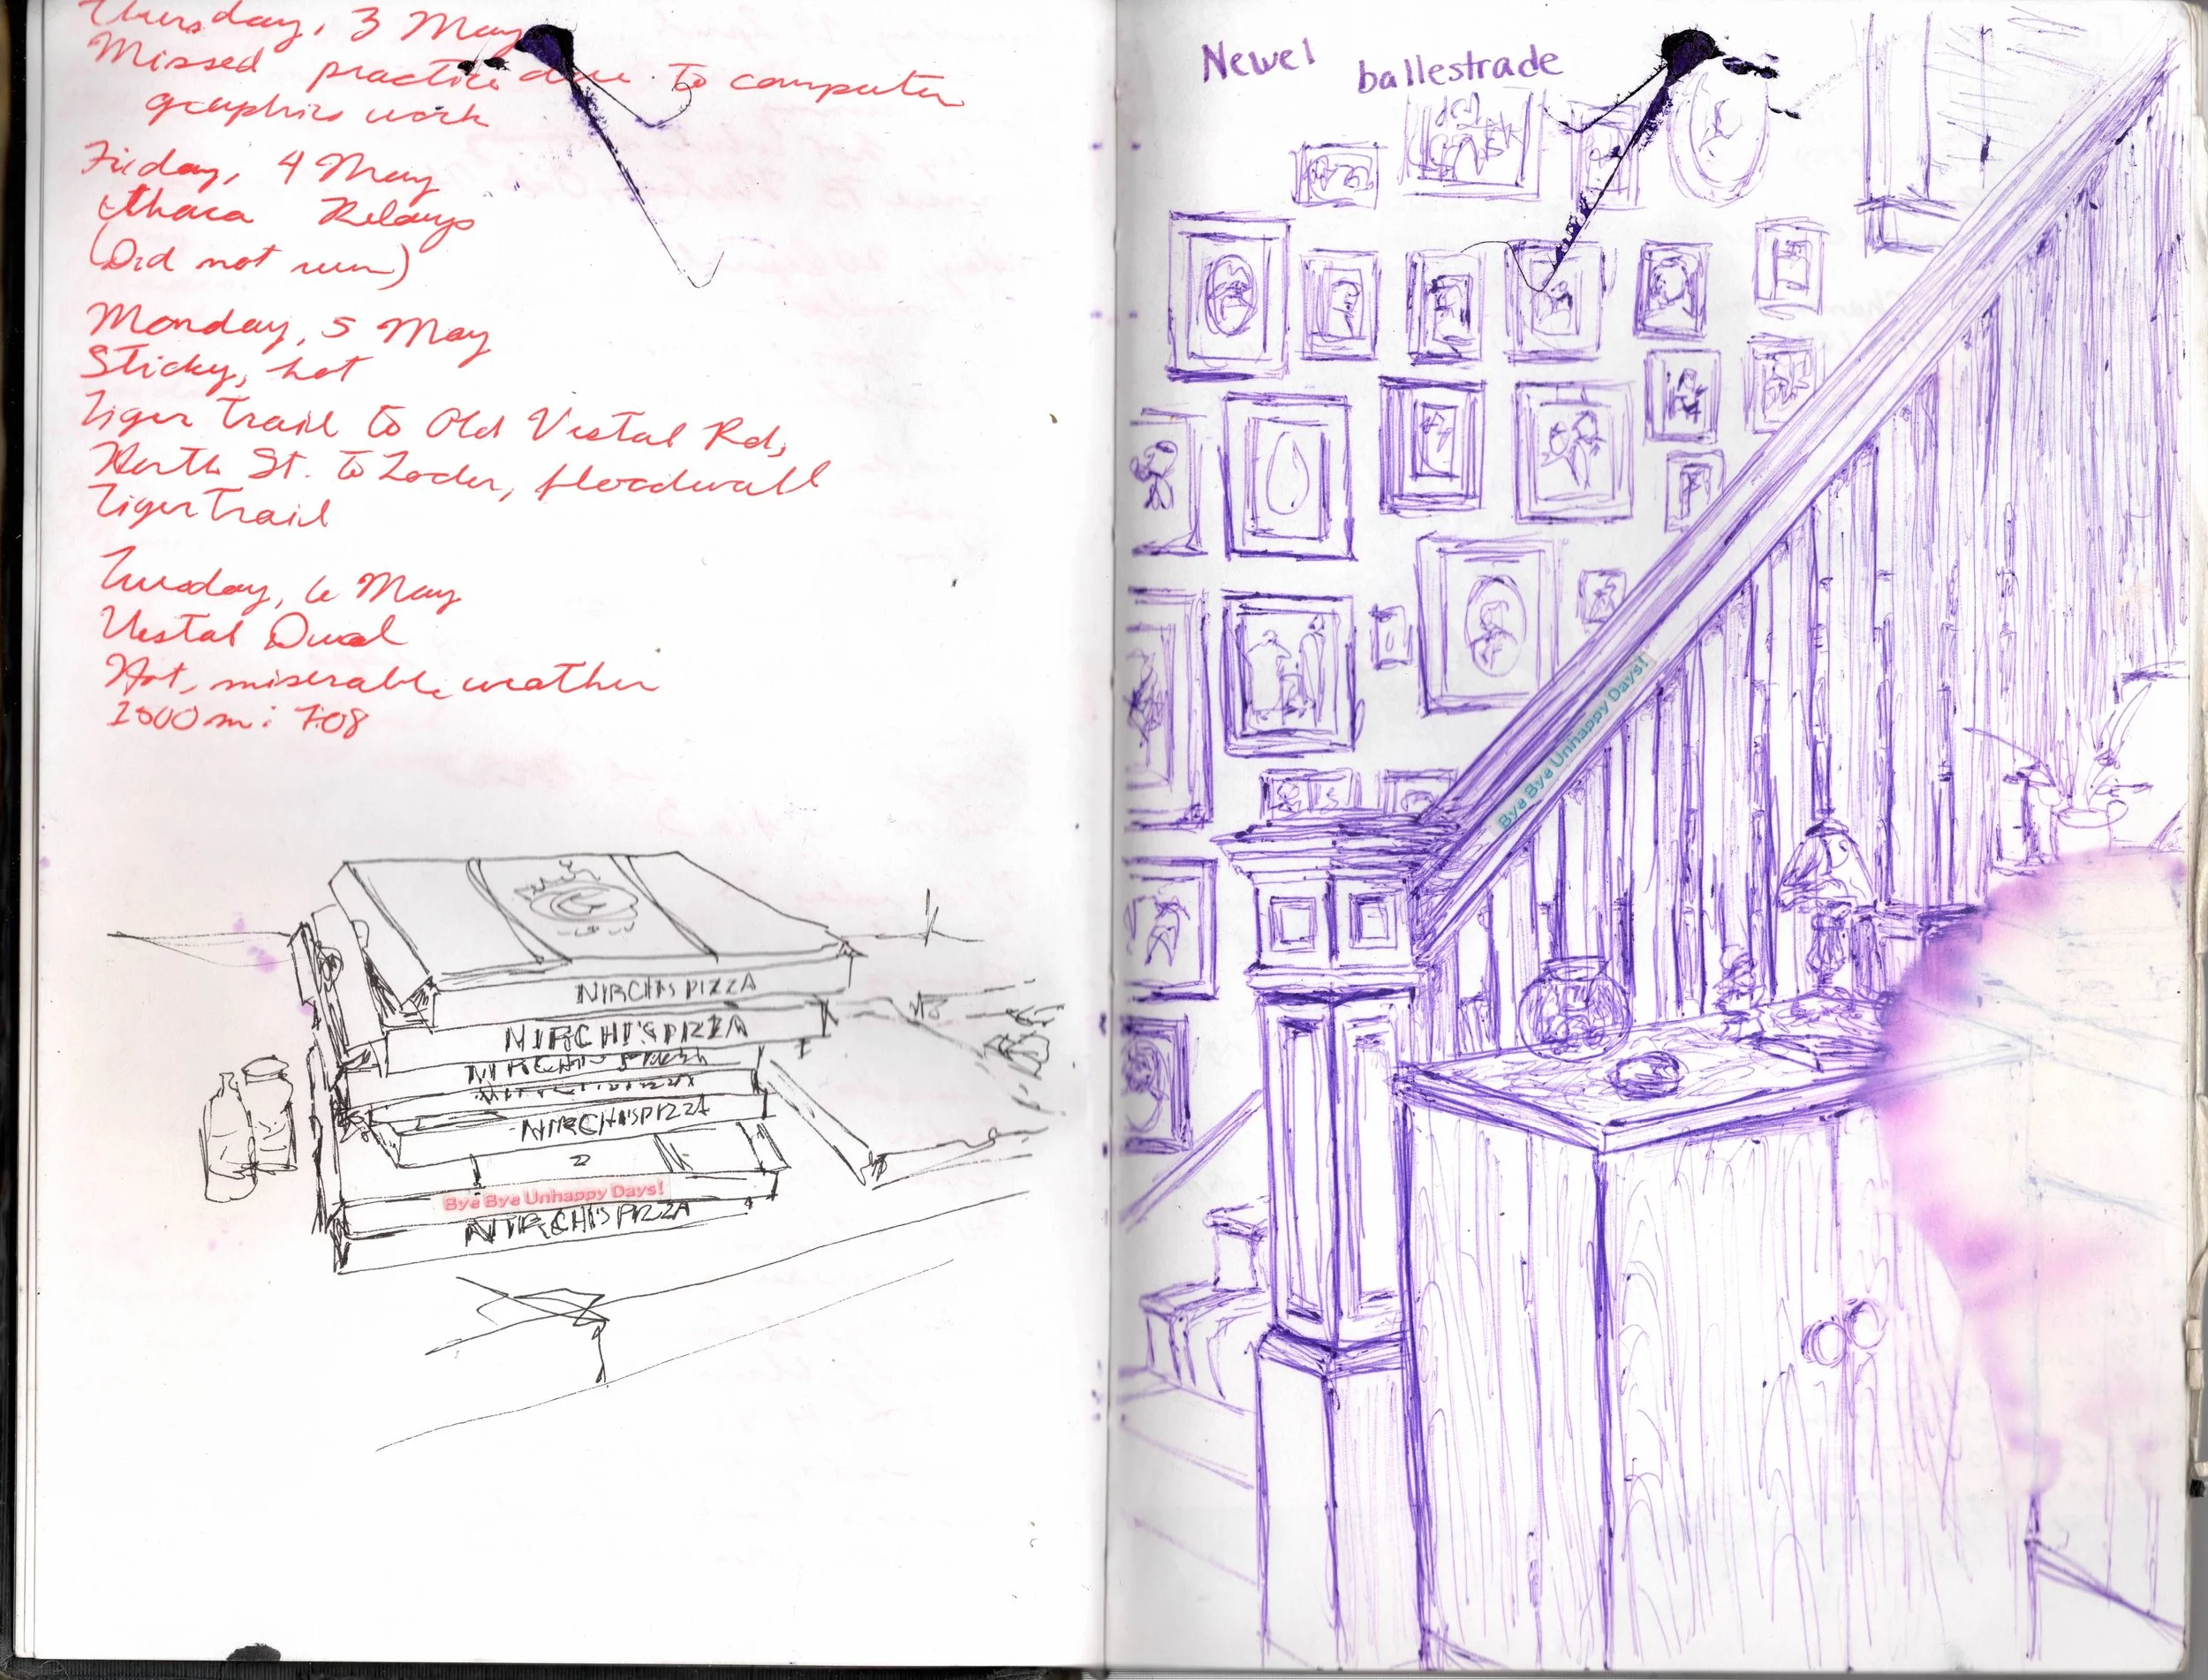 Thursday, 3 May
Missed practice due to computer
graphics work
Friday, 4 May
Ithaca Relays
(Did not run)
Monday, 5 May
Sticky, hot
Tiger Trail to Old Vestal Rd,
North St. to Loder, floodwall
Tiger Trail
Tuesday, 6 May
Vestal Dual
Hot, miserable weather
1500 m: 7:08
NIRCHI'S PIZZA
NIRCHI'S PIZZA
NIRCHI'S PIZZA
NIRCHI'S PIZZA
Bye Bye Unhappy Days!
NIRCHI'S PIZZA
Newel
ballestrade
Bye Bye Unhappy Days!